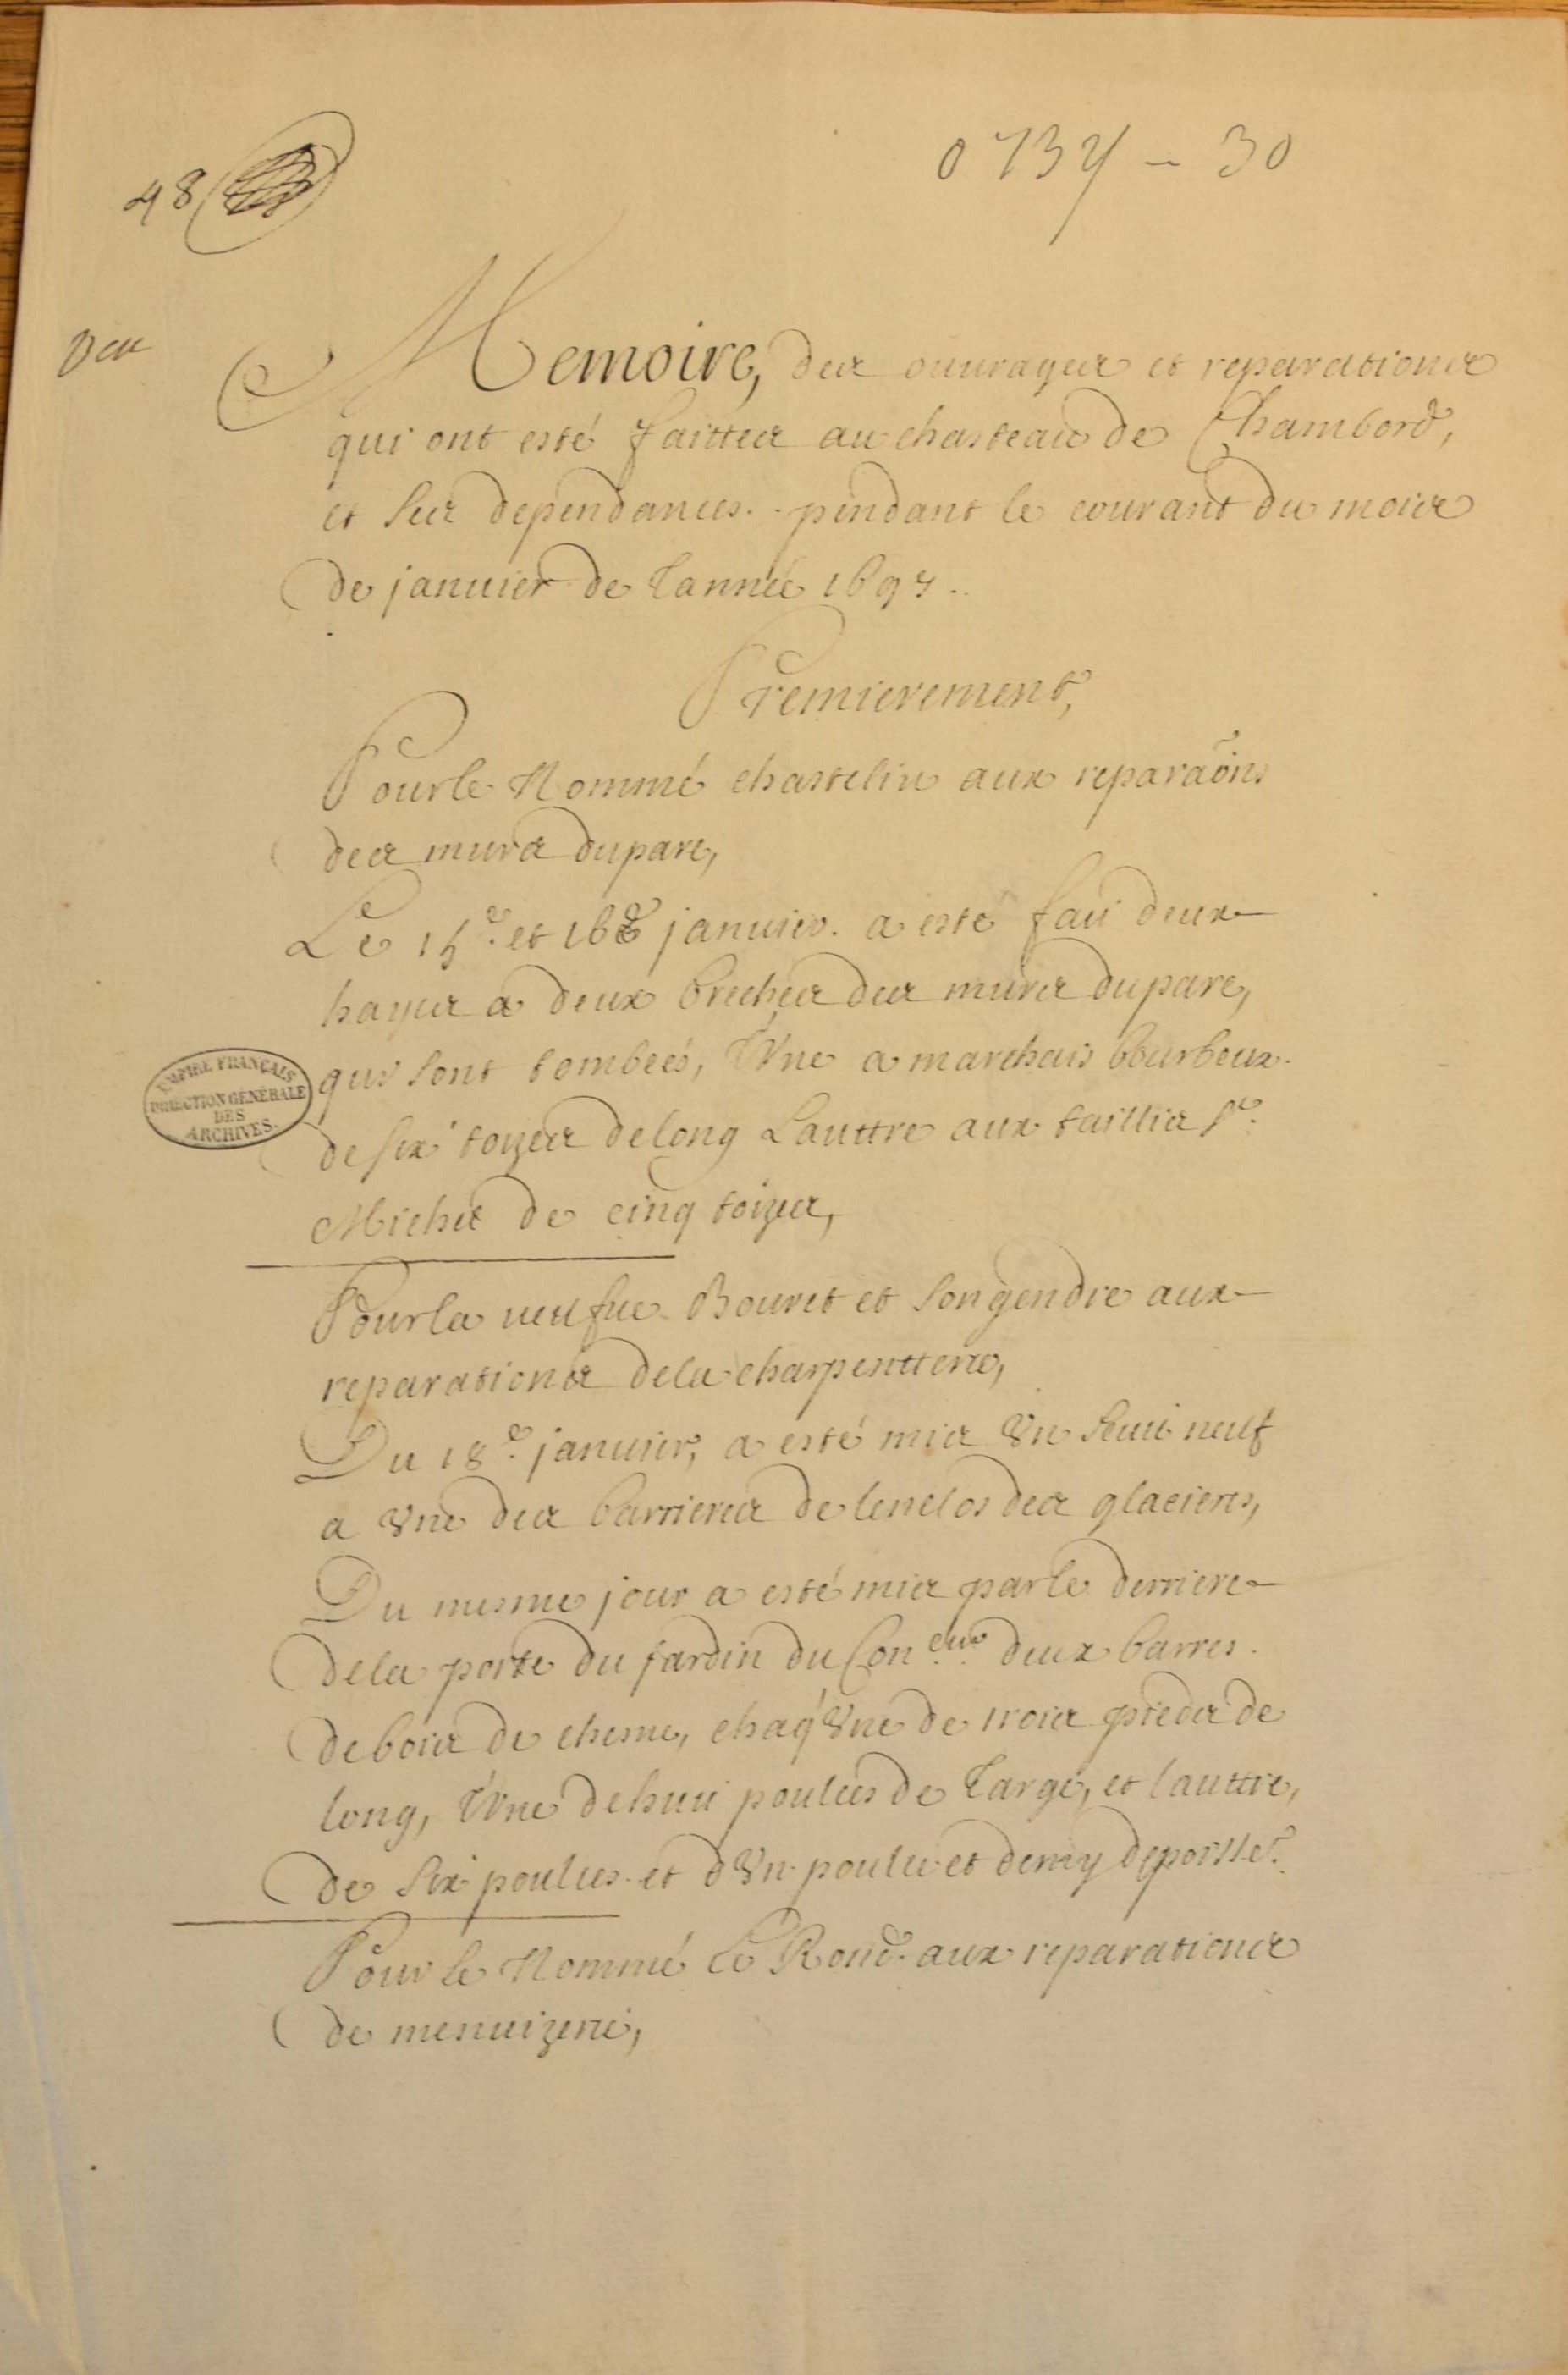 48
0 1734 - 30
Veu
Memoire, des ouurages et reparations
qui ont esté faittes au chasteau de Chambord,
et ses dependances. pendant le courant du mois
de januier de l'année 1697.
Premierement,
Pour le Nommé chastelin aux reparãons
des murs du parc,
Le 15e. et 16e januier. a esté fait deux
hayes a deux breches des murs du parc,
qui sont tombeés, l'Vne a marchais bourbeux.
de six toizes de long L'auttre aux taillis St.
Michel de cinq toizes,
Pour la ueufue Bouret et son gendre aux
reparations de la charpentterie,
Du 18e. januier, a esté mis Vn seuil neuf
a Vne des barrieres de lenclos des glacieres,
Du mesme jour a esté mis par le derriere
de la porte du jardin du Con.eur deux barres.
de bois de chesne, chaq'Vne de trois pieds de
long, l'Vne de huit poulces de large, et lauttre,
de six poulces et d'Vn poulce et demy depoisser.
Pour le Nommé Le Rond. aux reparations
de menuizerie,
EMPIRE FRANÇAIS
DIRECTION GÉNÉRALE
DES
ARCHIVES.